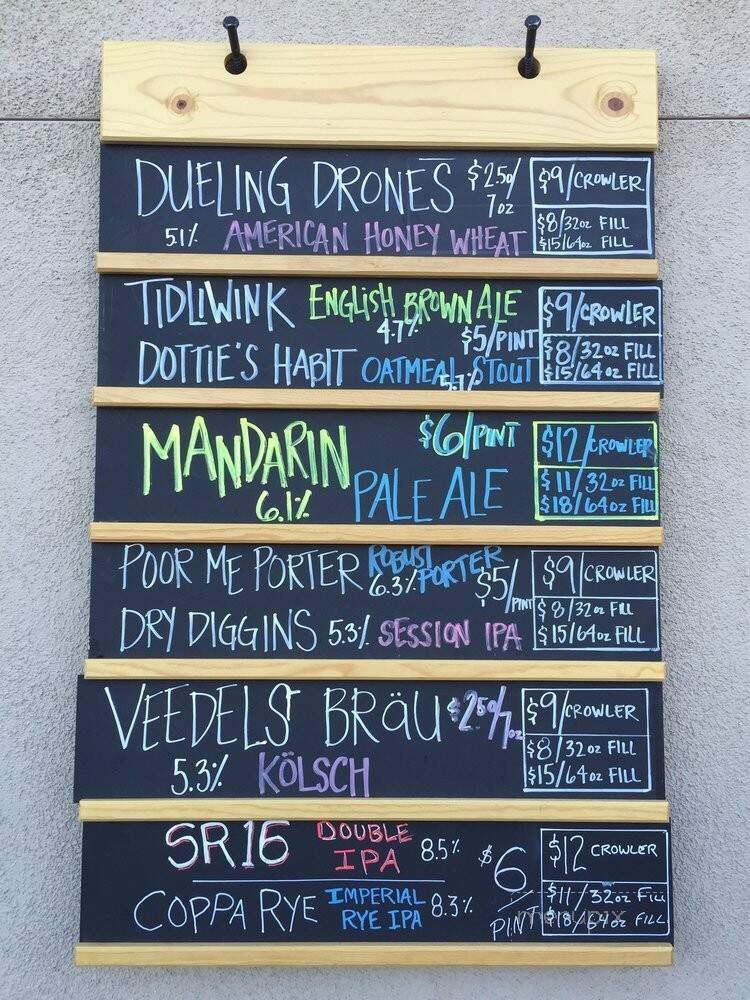 DUELING DRONES $2.50/7oz $9/CROWLER
5.1% AMERICAN HONEY WHEAT $8/32oz FILL
$15/64oz FILL
TIDLIWINK ENGLISH BROWN ALE $9/CROWLER
4.7% $5/PINT
DOTTIE'S HABIT OATMEAL STOUT $8/32oz FILL
5.7% $15/64oz FILL
MANDARIN $6/PINT $12/CROWLER
6.1% PALE ALE $11/32oz FILL
$18/64oz FILL
POOR ME PORTER ROBUST PORTER $9/CROWLER
6.3% $5/PINT
DRY DIGGINS 5.3% SESSION IPA $8/32oz FILL
$15/64oz FILL
VEEDELS BRÄU $2.50/7oz $9/CROWLER
5.3% KÖLSCH $8/32oz FILL
$15/64oz FILL
SR16 DOUBLE IPA 8.5% $6 PINT $12 CROWLER
COPPA RYE IMPERIAL RYE IPA 8.3% $11/32oz FILL
$18/64oz FILL
menupix